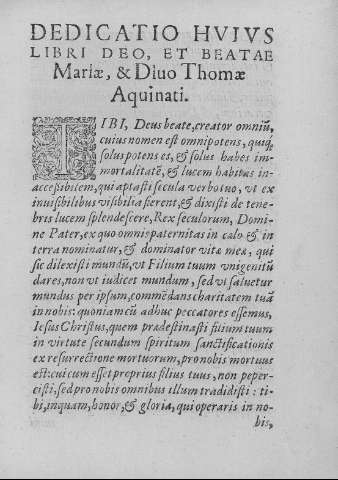 DEDICATIO HVIVS
LIBRI DEO, ET BEATAE
Mariæ, & Diuo Thomæ
Aquinati.
TIBI, Deus beate, creator omniũ,
cuius nomen est omnipotens, quiq;
solus potens es, & solus habes im-
mortalitatẽ, & lucem habitas in-
accessibilem, qui aptasti secula verbo tuo, vt ex
inuisibilibus visibilia fierent, & dixisti de tene-
bris lucem splendescere, Rex seculorum, Domi-
ne Pater, ex quo omnis paternitas in cælo & in
terra nominatur, & dominator vitæ meæ, qui
sic dilexisti mundũ, vt Filium tuum vnigenitũ
dares, non vt iudicet mundum, sed vt saluetur
mundus per ipsum, commẽdans charitatem tuã
in nobis: quoniam cũ adhuc peccatores essemus,
Iesus Christus, quem prædestinasti filium tuum
in virtute secundum spiritum sanctificationis
ex resurrectione mortuorum, pro nobis mortuus
est: cui cum esset proprius filius tuus, non peper-
cisti, sed pro nobis omnibus illum tradidisti: ti-
bi, inquam, honor, & gloria, qui operaris in no-
bis,